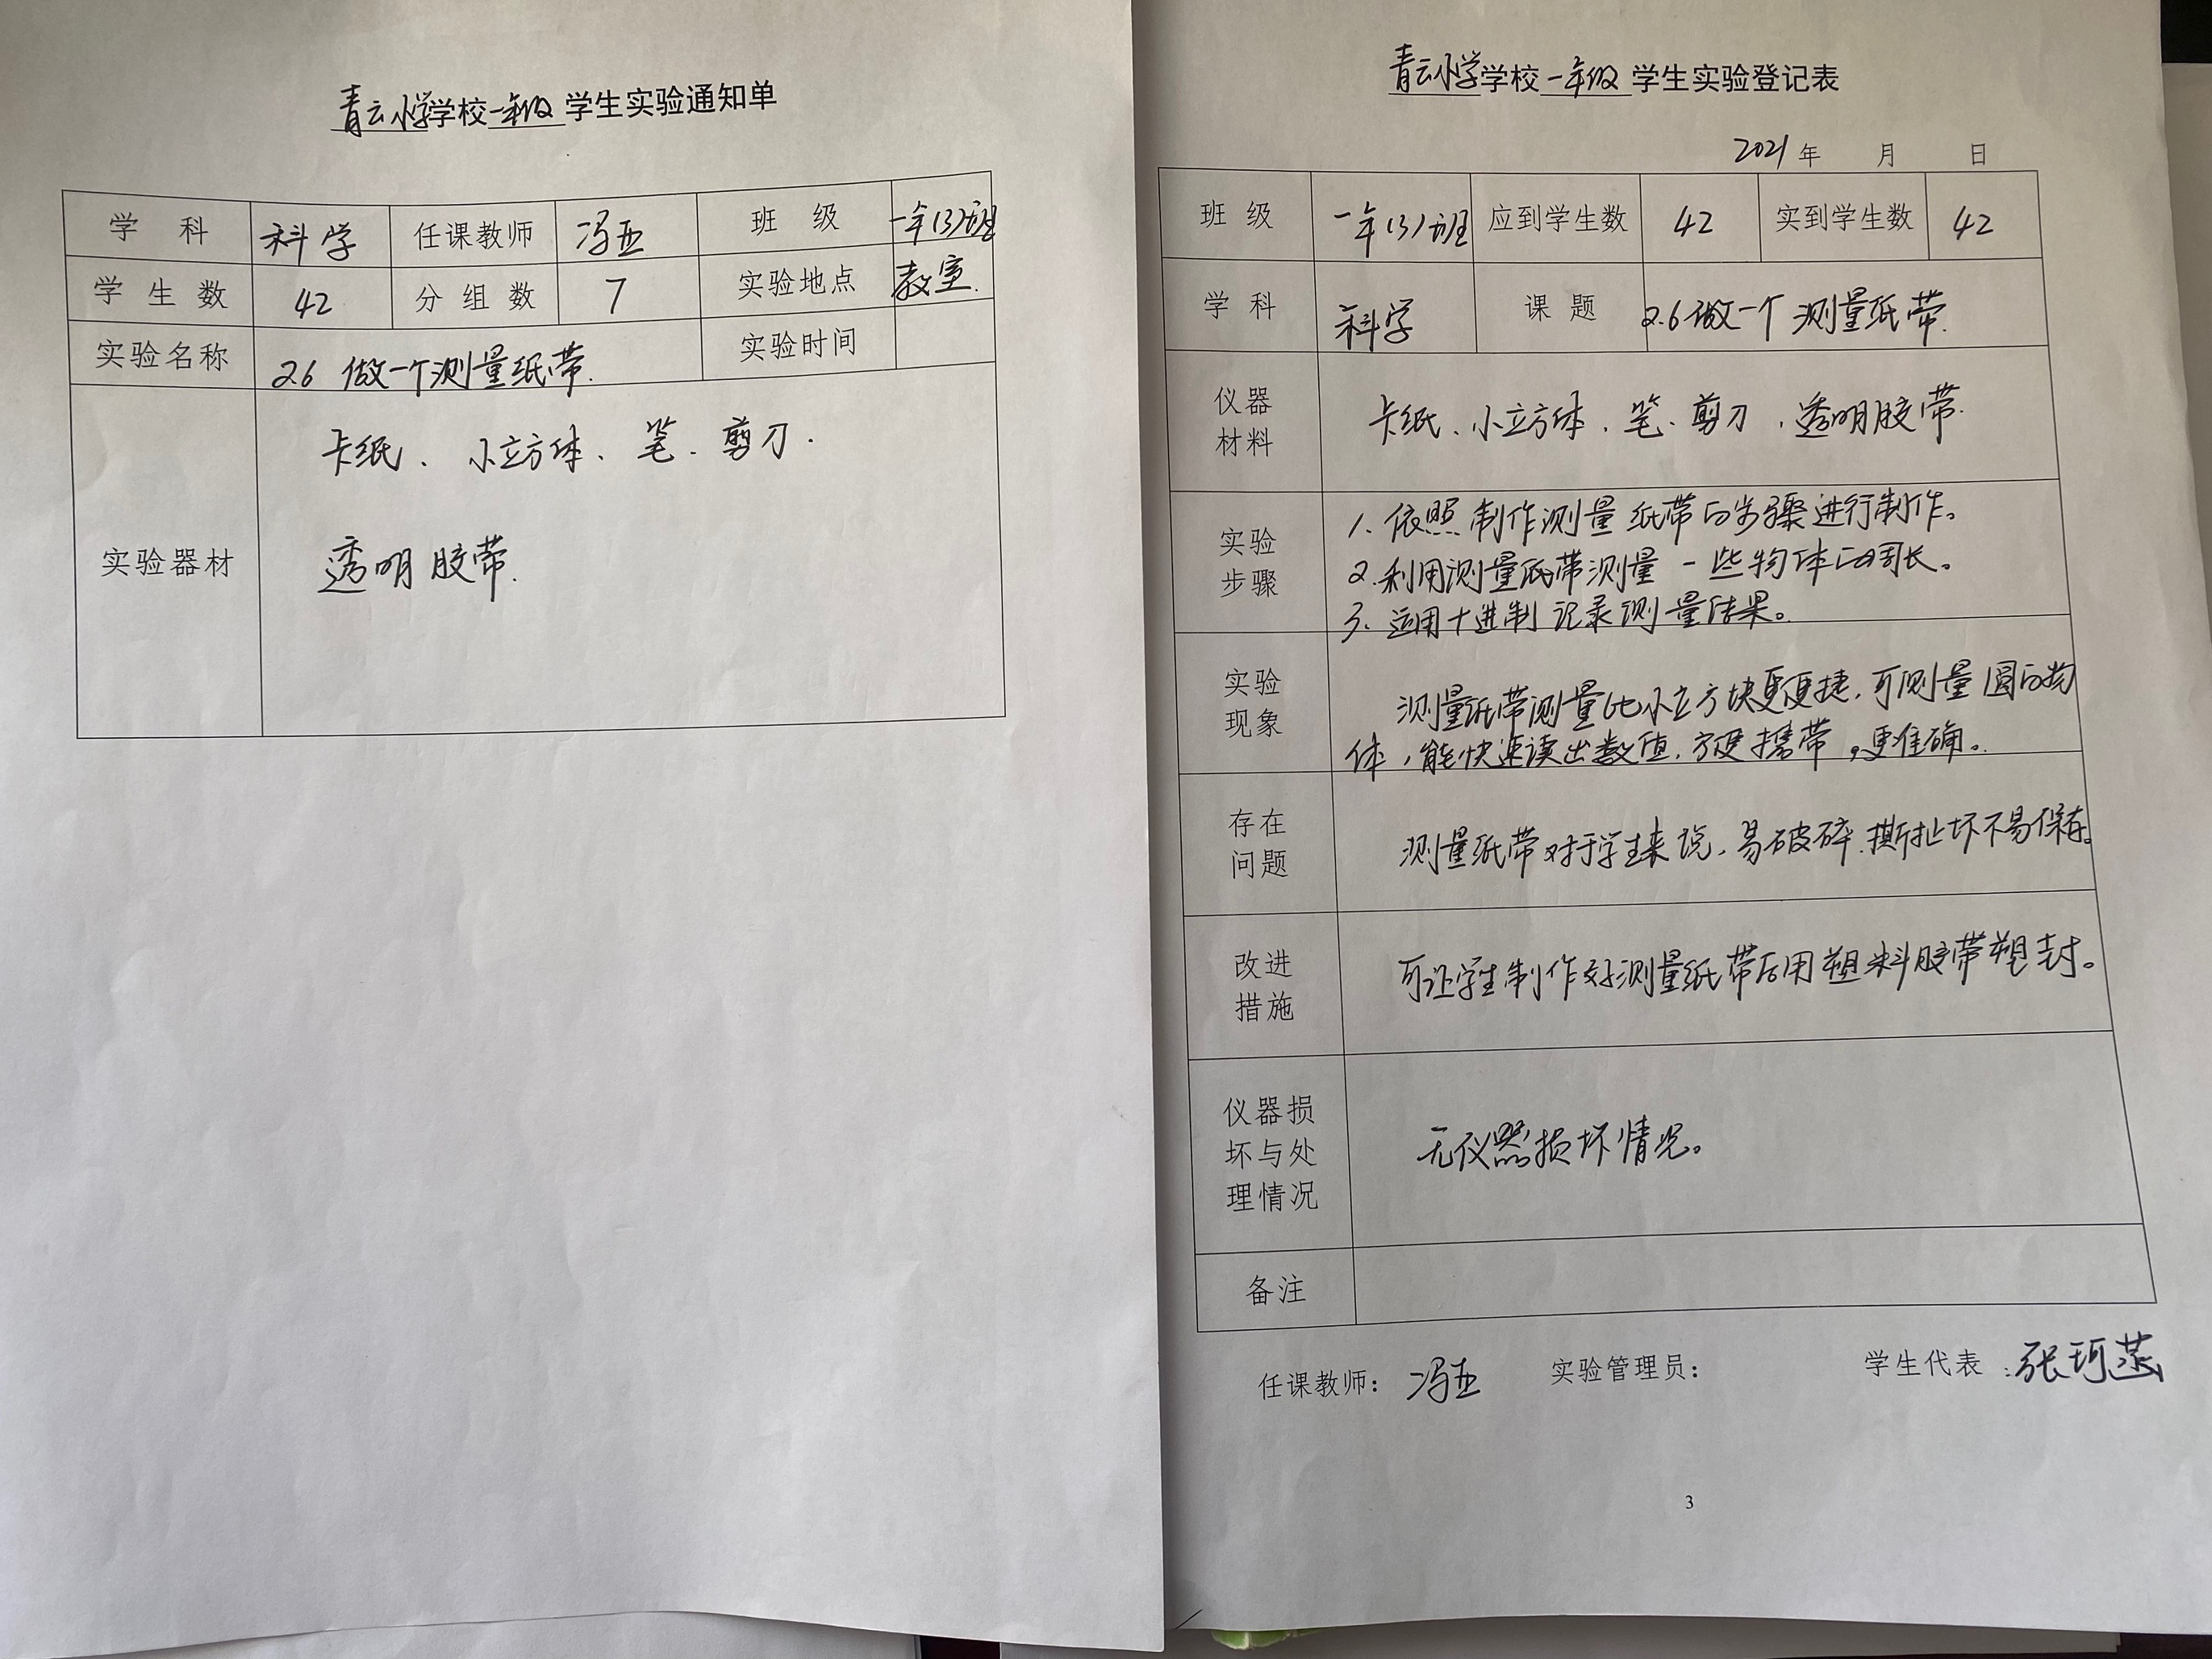 青云小学学校一年级学生实验通知单
学 科 科学 任课教师 冯亚 班 级 一年(3)班
学 生 数 42 分 组 数 7 实验地点 教室.
实验名称 2.6 做一个测量纸带. 实验时间
实验器材 卡纸、小立方体、笔、剪刀.
透明胶带.
青云小学学校一年级学生实验登记表
2021 年 月 日
班 级 一年(3)班 应到学生数 42 实到学生数 42
学 科 科学 课 题 2.6做一个测量纸带.
仪器材料 卡纸、小立方体、笔、剪刀、透明胶带.
实验步骤 1. 依照制作测量纸带的步骤进行制作。
2. 利用测量纸带测量一些物体的周长。
3. 运用十进制记录测量结果。
实验现象 测量纸带测量比小立方块更便捷,可测量圆的物
体,能快速读出数值,方便携带,更准确。
存在问题 测量纸带对于学生来说,易破碎、撕扯坏不易保存。
改进措施 可让学生制作好测量纸带后用塑料胶带塑封。
仪器损坏与处理情况 无仪器损坏情况。
备注
任课教师: 冯亚 实验管理员: 学生代表:张珂
3